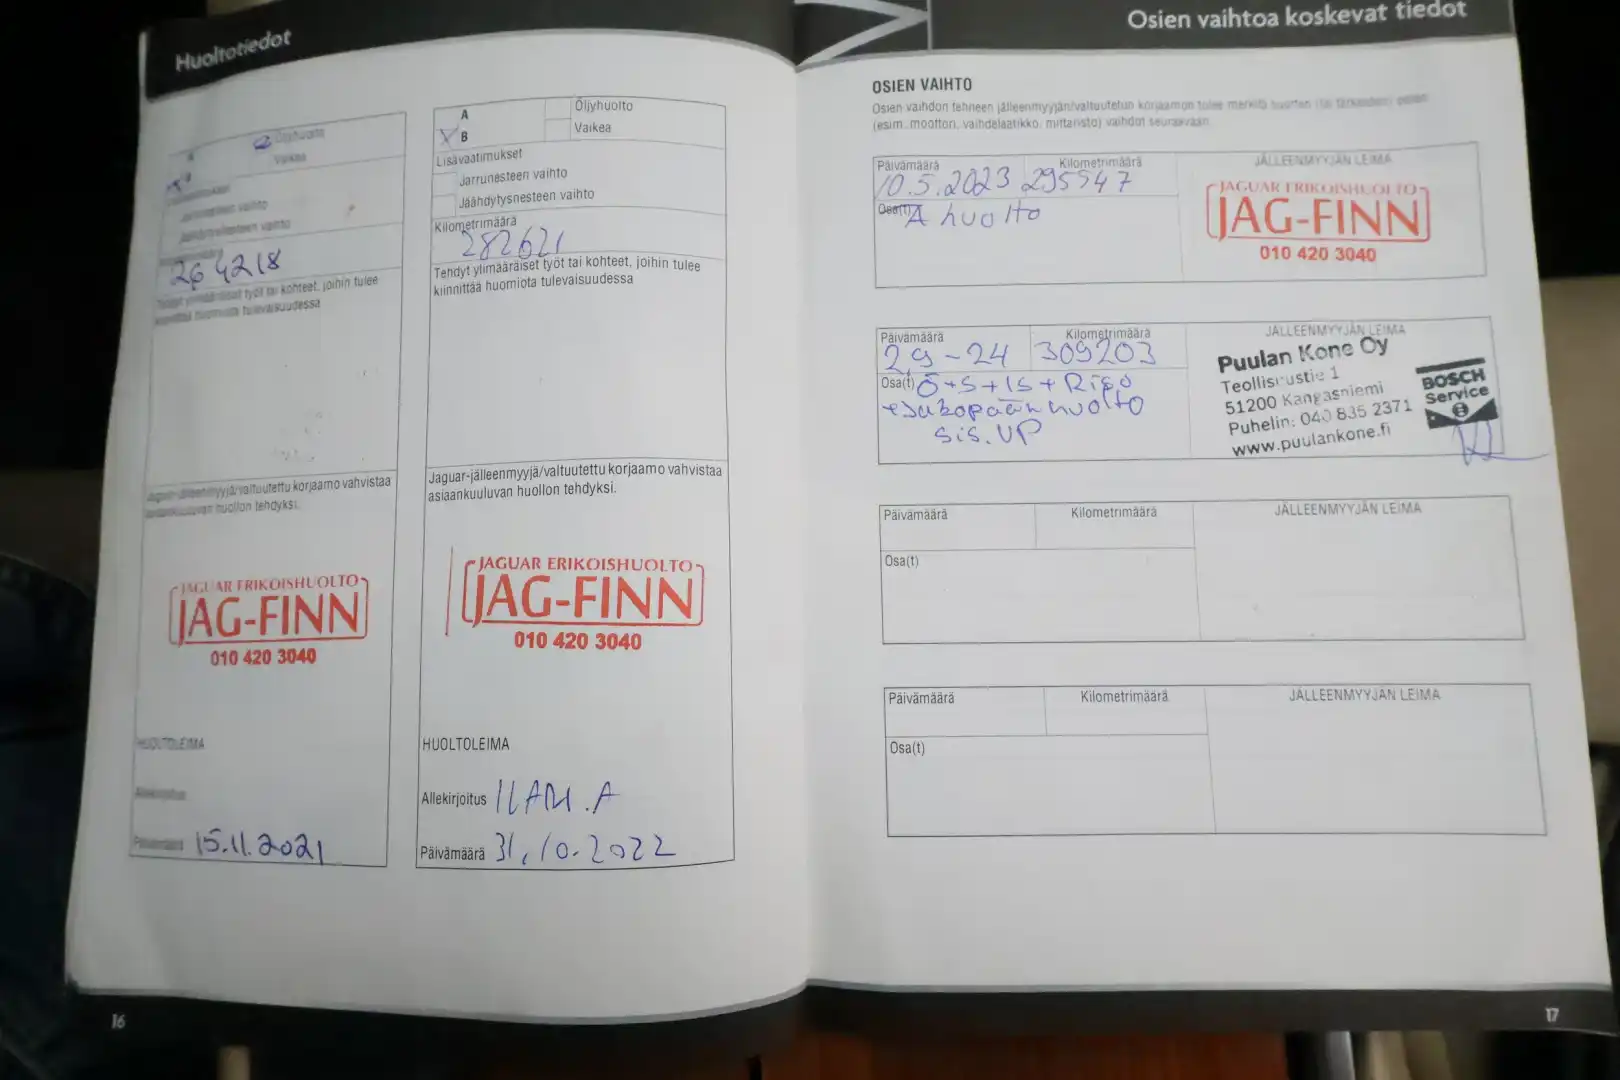 Huoltotiedot
Öljyhuolto
Vaikea
Jarrunesteen vaihto
Jäähdytysnesteen vaihto
264218
Tehdyt ylimääräiset työt tai kohteet, joihin tulee
kiinnittää huomiota tulevaisuudessa
Jaguar-jälleenmyyjä/valtuutettu korjaamo vahvistaa
asiaankuuluvan huollon tehdyksi.
JAGUAR ERIKOISHUOLTO
JAG-FINN
010 420 3040
HUOLTOLEIMA
Allekirjoitus
Päivämäärä 15.11.2021
16
A
X B
Öljyhuolto
Vaikea
Lisävaatimukset
Jarrunesteen vaihto
Jäähdytysnesteen vaihto
Kilometrimäärä
282621
Tehdyt ylimääräiset työt tai kohteet, joihin tulee
kiinnittää huomiota tulevaisuudessa
Jaguar-jälleenmyyjä/valtuutettu korjaamo vahvistaa
asiaankuuluvan huollon tehdyksi.
JAGUAR ERIKOISHUOLTO
JAG-FINN
010 420 3040
HUOLTOLEIMA
Allekirjoitus
Päivämäärä 31.10.2022
Osien vaihtoa koskevat tiedot
OSIEN VAIHTO
Osien vaihdon tehneen jälleenmyyjän/valtuutetun korjaamon tulee merkitä suurten (tai tärkeiden) osien
(esim. moottori, vaihdelaatikko, mittaristo) vaihdot seuraavaan.
Päivämäärä Kilometrimäärä JÄLLEENMYYJÄN LEIMA
10.5.2023 295547
Osa(t) A huolto
JAGUAR ERIKOISHUOLTO
JAG-FINN
010 420 3040
Päivämäärä Kilometrimäärä JÄLLEENMYYJÄN LEIMA
2.9-24 309203
Osa(t) Ö+S+IS+Rigo
+Jakopäänhuolto
sis. VP
Puulan Kone Oy
Teollisuustie 1
51200 Kangasniemi
Puhelin: 040 835 2371
www.puulankone.fi
BOSCH
Service
Päivämäärä Kilometrimäärä JÄLLEENMYYJÄN LEIMA
Osa(t)
Päivämäärä Kilometrimäärä JÄLLEENMYYJÄN LEIMA
Osa(t)
17